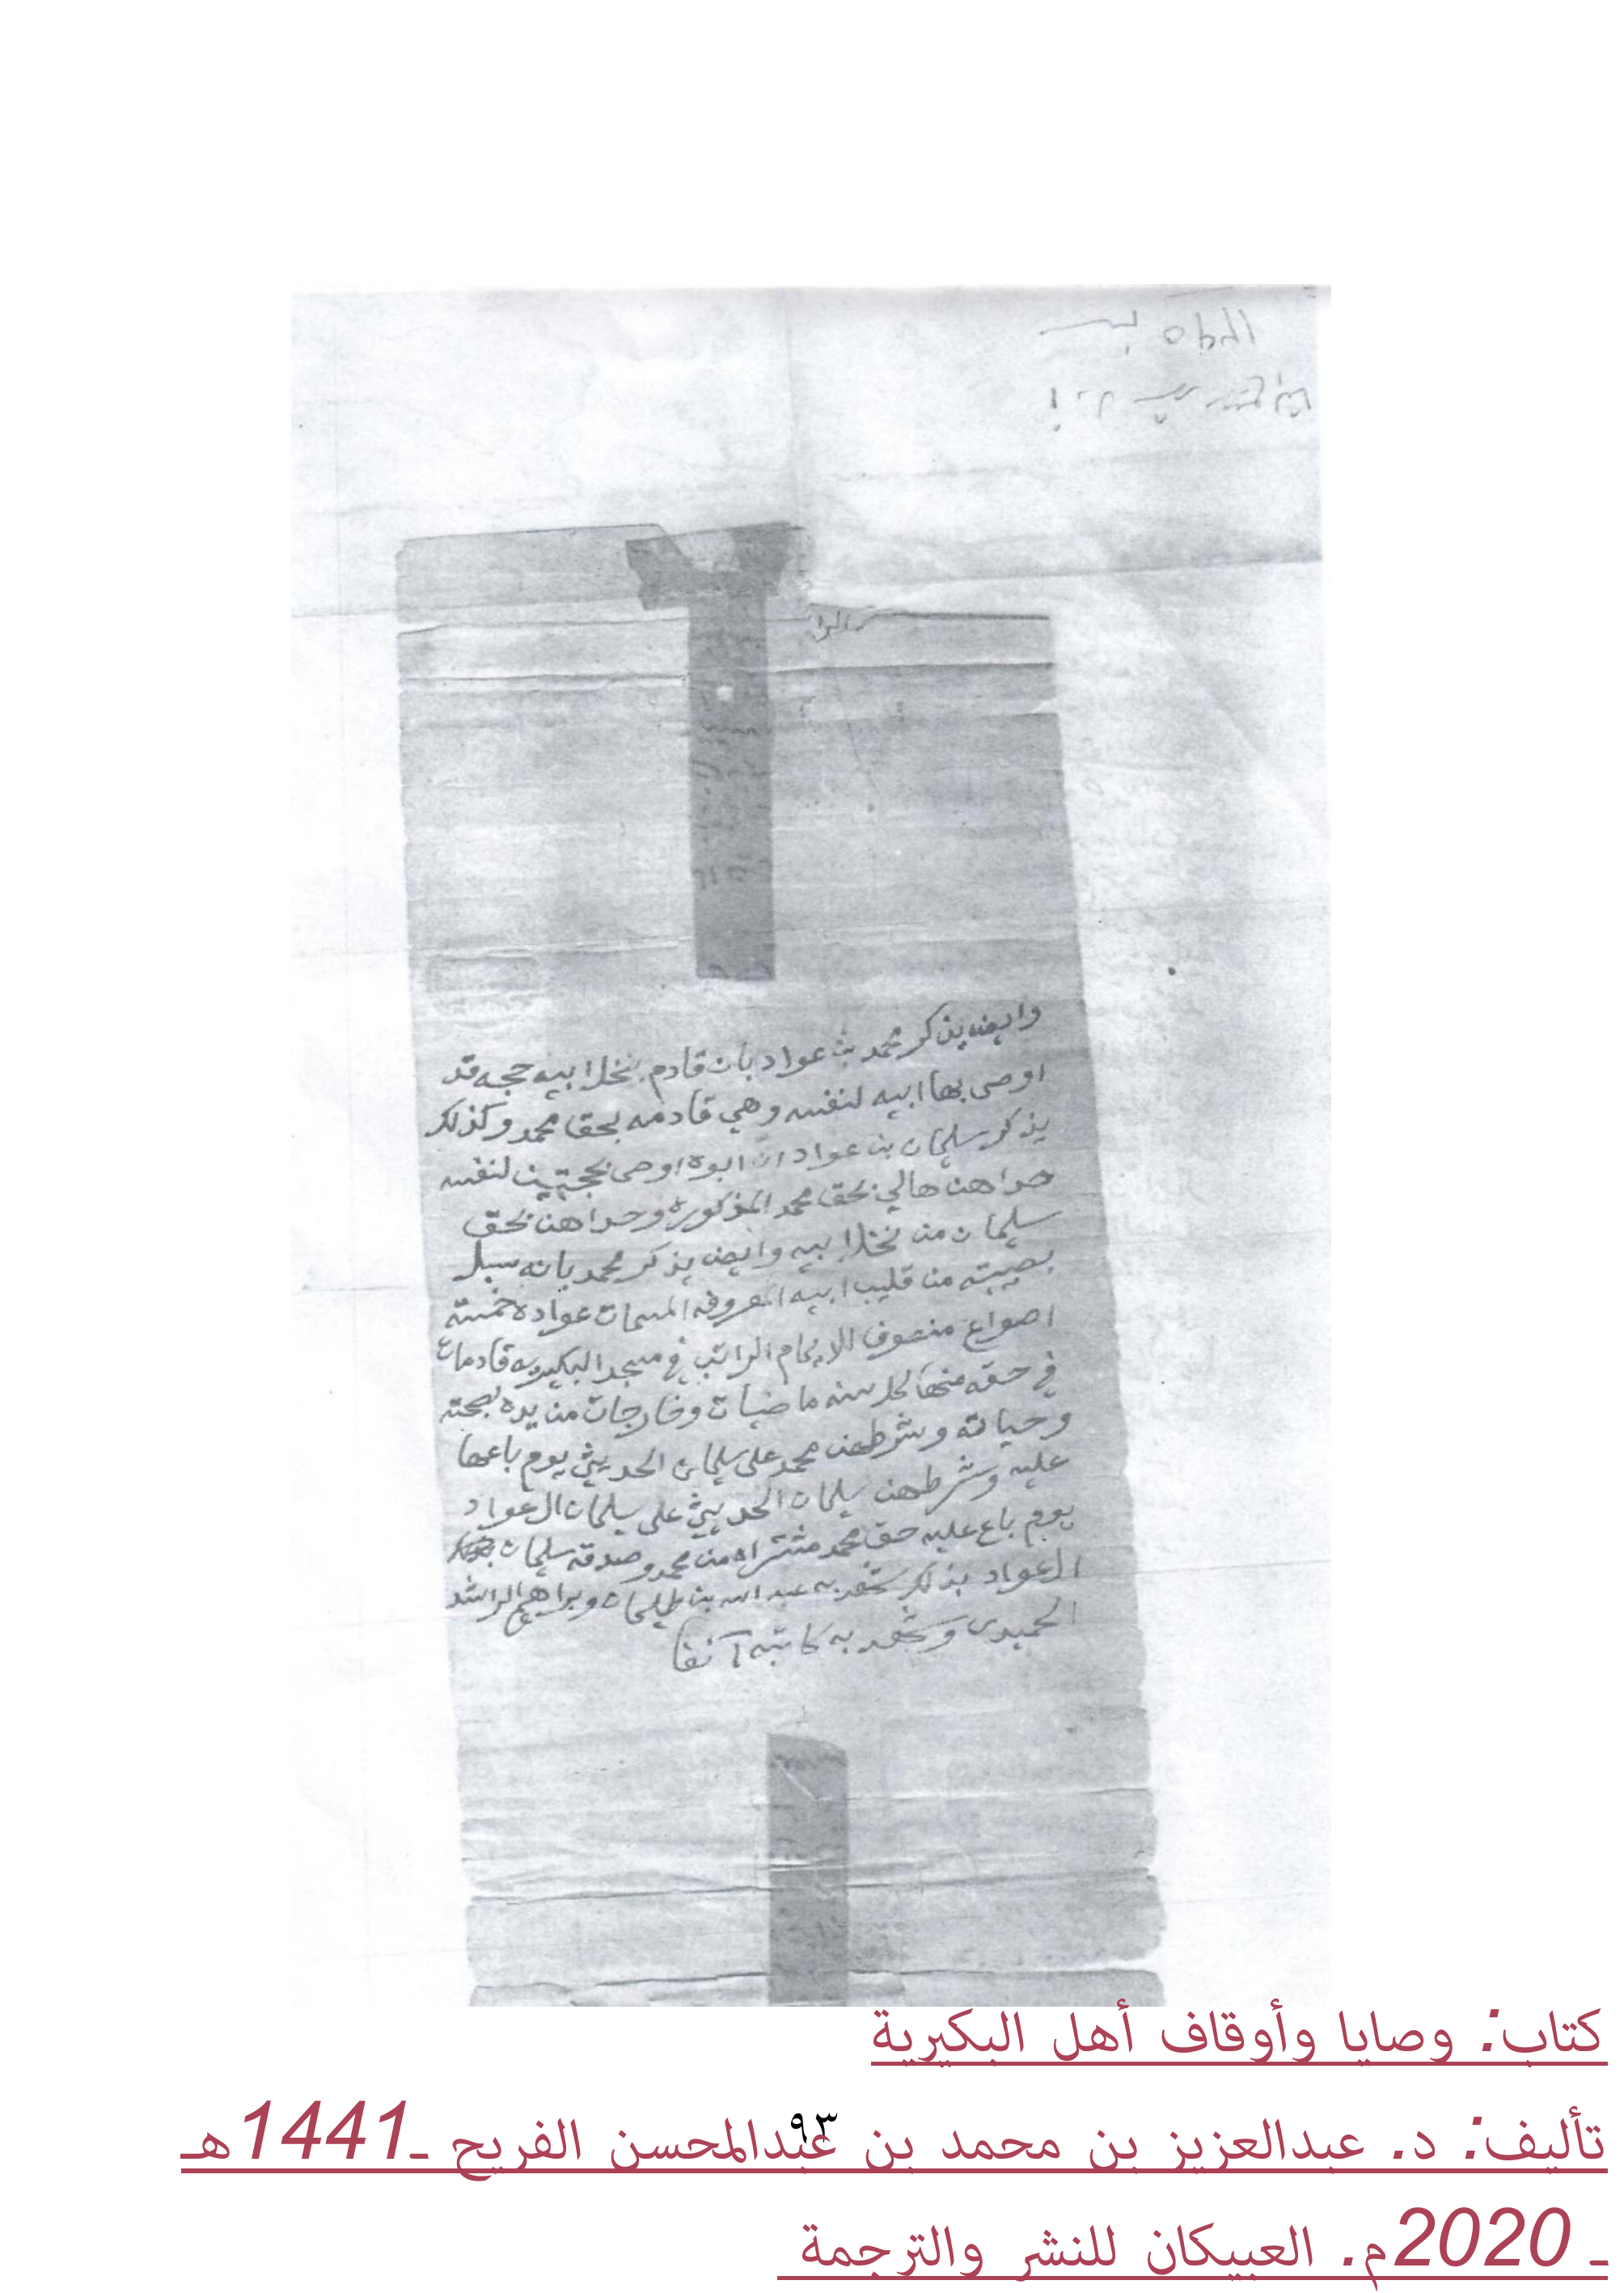 وايض يذكر محمد بن عواد بان قادم بنخل ابيه حجه قد
اوصى بها ابيه لنفسه وهي قادمه بحق محمد وكذلك
يذكر سليمان بن عواد ان ابوه اوصى بحجتين لنفسه
حداهن هالي بحق محمد المذكوره وحداهن بحق
سليمان من نخل ابيه وايض يذكر محمد بانه سبل
بصيبته من قليب ابيه المعروفه المسمات عواده خمسة
اصواع منصوف للامام الراتب في مسجد البكيريه قادمات
في حقه منها لكل سنه ماضيات وخارجات من يده بصحته
وحياته وشرطهن محمد على سليمان الحديثي يوم باعها
عليه وشرطهن سليمان الحديثي على سليمان ال عواد
يوم باع عليه حق محمد مشتراه من محمد وصدقه سليمان
العواد بذلك شهد به عبد الله بن وبراهيم الراشد
الحميدي وشهد به كاتبه آنفا
كتاب: وصايا وأوقاف أهل البكيرية
تأليف: د. عبدالعزيز بن محمد بن عبدالمحسن الفريح ـ1441هـ
ـ 2020م. العبيكان للنشر والترجمة
٩٣